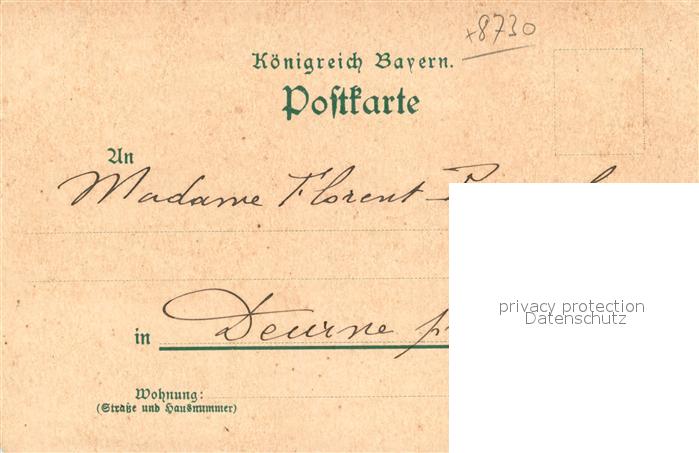 +8730
Königreich Bayern.
Poſtkarte
An
Madame Florent
in Deurne
privacy protection
Datenschutz
Wohnung:
(Straße und Hausnummer)